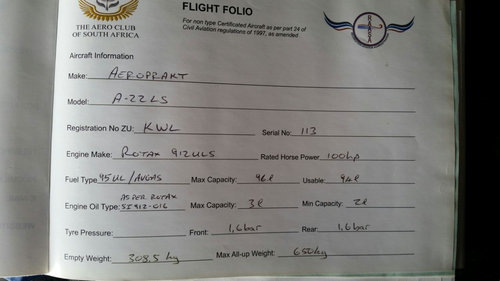 THE AERO CLUB
OF SOUTH AFRICA
FLIGHT FOLIO
For non type Certificated Aircraft as per part 24 of
Civil Aviation regulations of 1997, as amended
Aircraft Information
Make: AEROPRAKT
Model: A-22LS
Registration No ZU: KWL Serial No: 113
Engine Make: ROTAX 912ULS Rated Horse Power 100hp
Fuel Type 95UL/AVGAS Max Capacity: 96l Usable: 94l
Engine Oil Type: AS PER ROTAX SI 912-016 Max Capacity: 3l Min Capacity: 2l
Tyre Pressure: Front: 1,6bar Rear: 1,6bar
Empty Weight: 308,5 kg Max All-up Weight: 650kg